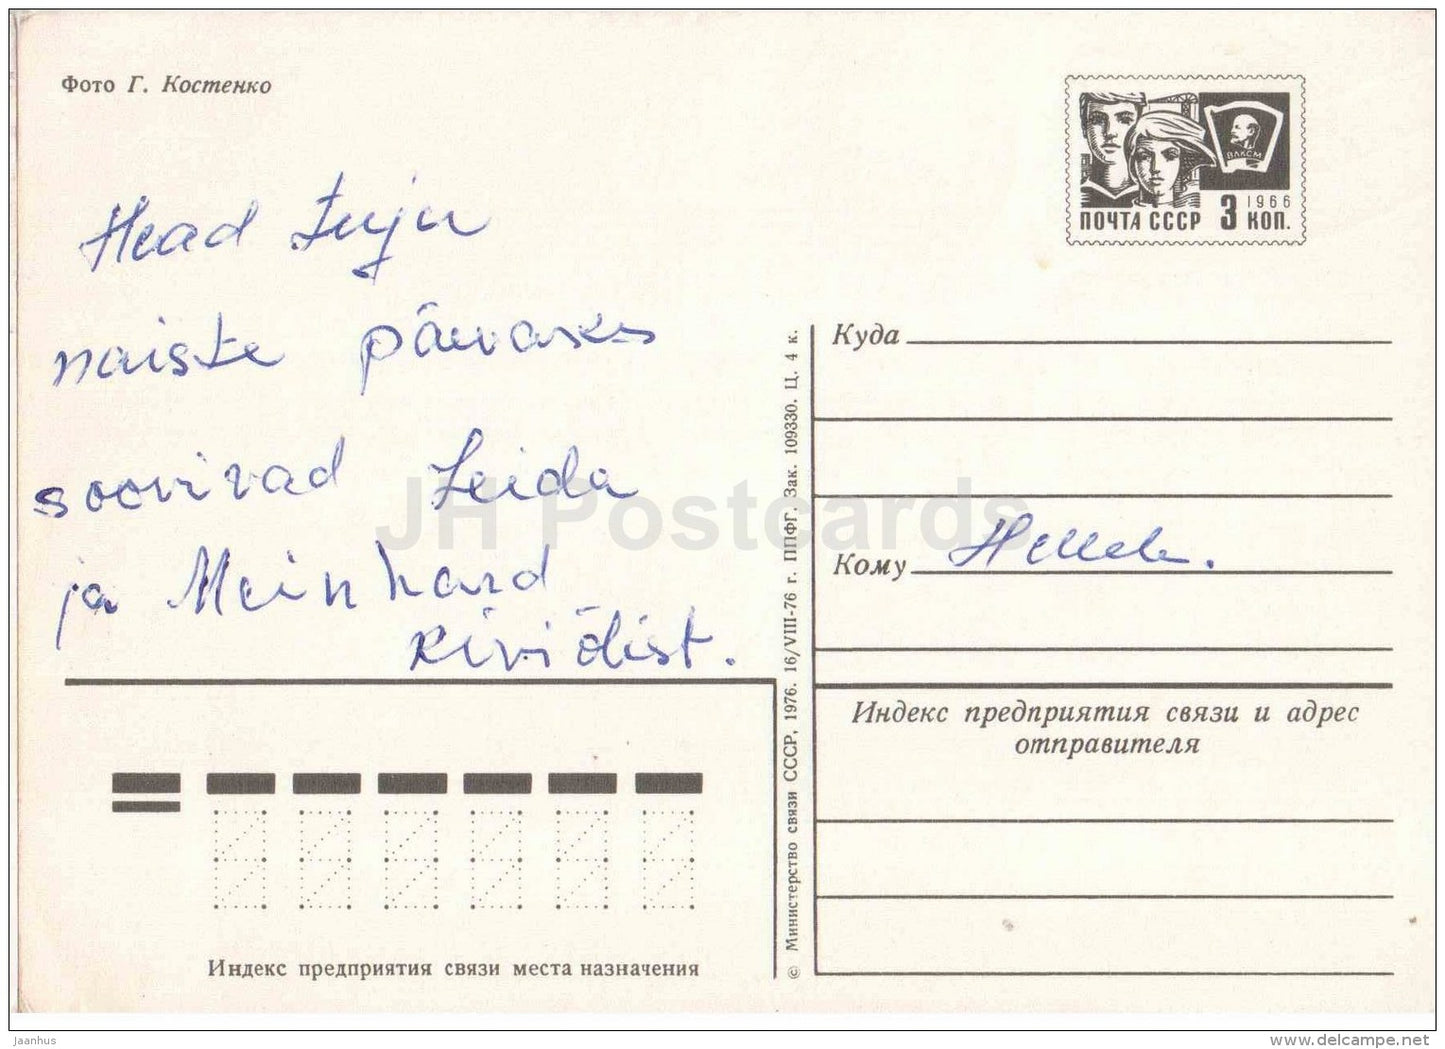 Фото Г. Костенко
ВЛКСМ
1966
ПОЧТА СССР 3 КОП.
Head tuju
naiste päevaks
soovivad Leida
ja Meinhard
Kiviõlist.
JH Postcards
Куда
Кому
Индекс предприятия связи и адрес
отправителя
Индекс предприятия связи места назначения
© Министерство связи СССР, 1976. 16/VIII-76 г. ППФГ. Зак. 109330. Ц. 4 к.
jaanhus
www.delcampe.net